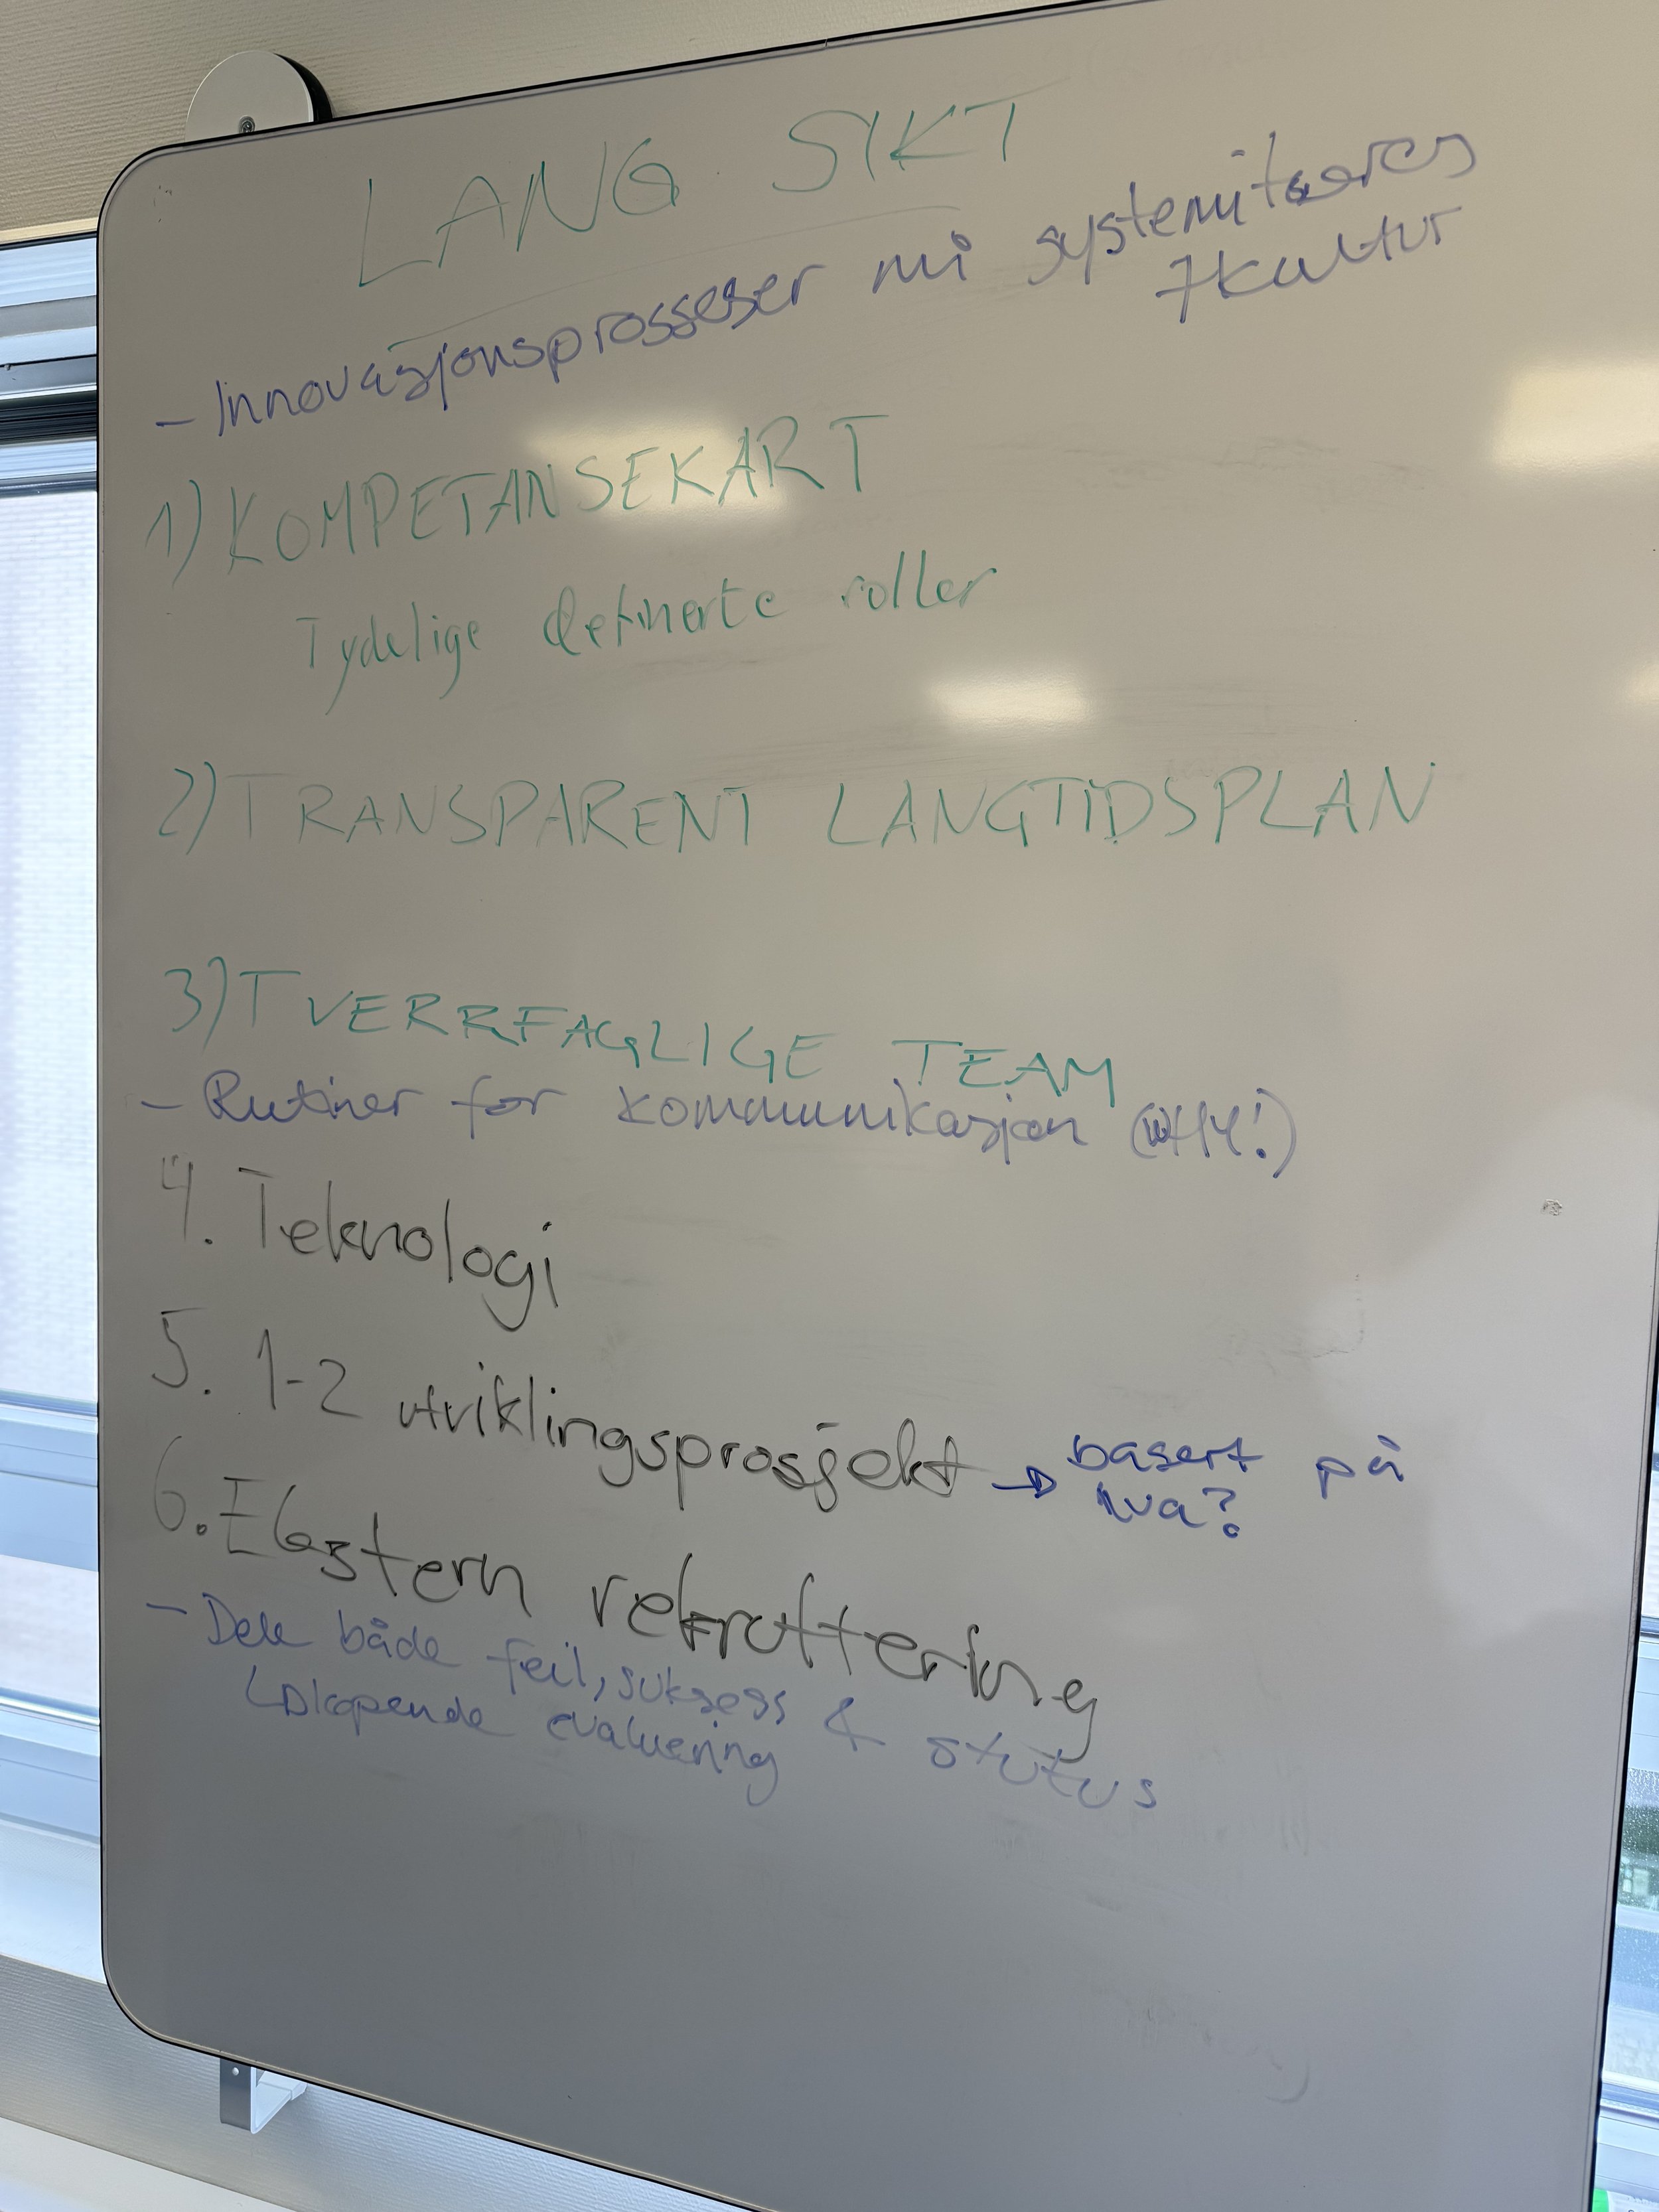 LANG SIKT
- Innovasjonsprosseser må systemitseres
→ kultur
1) KOMPETANSEKART
Tydelige definerte roller
2) TRANSPARENT LANGTIDSPLAN
3) TVERRFAGLIGE TEAM
- Rutiner for kommunikasjon (WHY!)
4. Teknologi
5. 1-2 utviklingsprosjekt → basert på
hva?
6. Ekstern rekruttering
- Dele både feil, suksess & status
↳ løpende evaluering